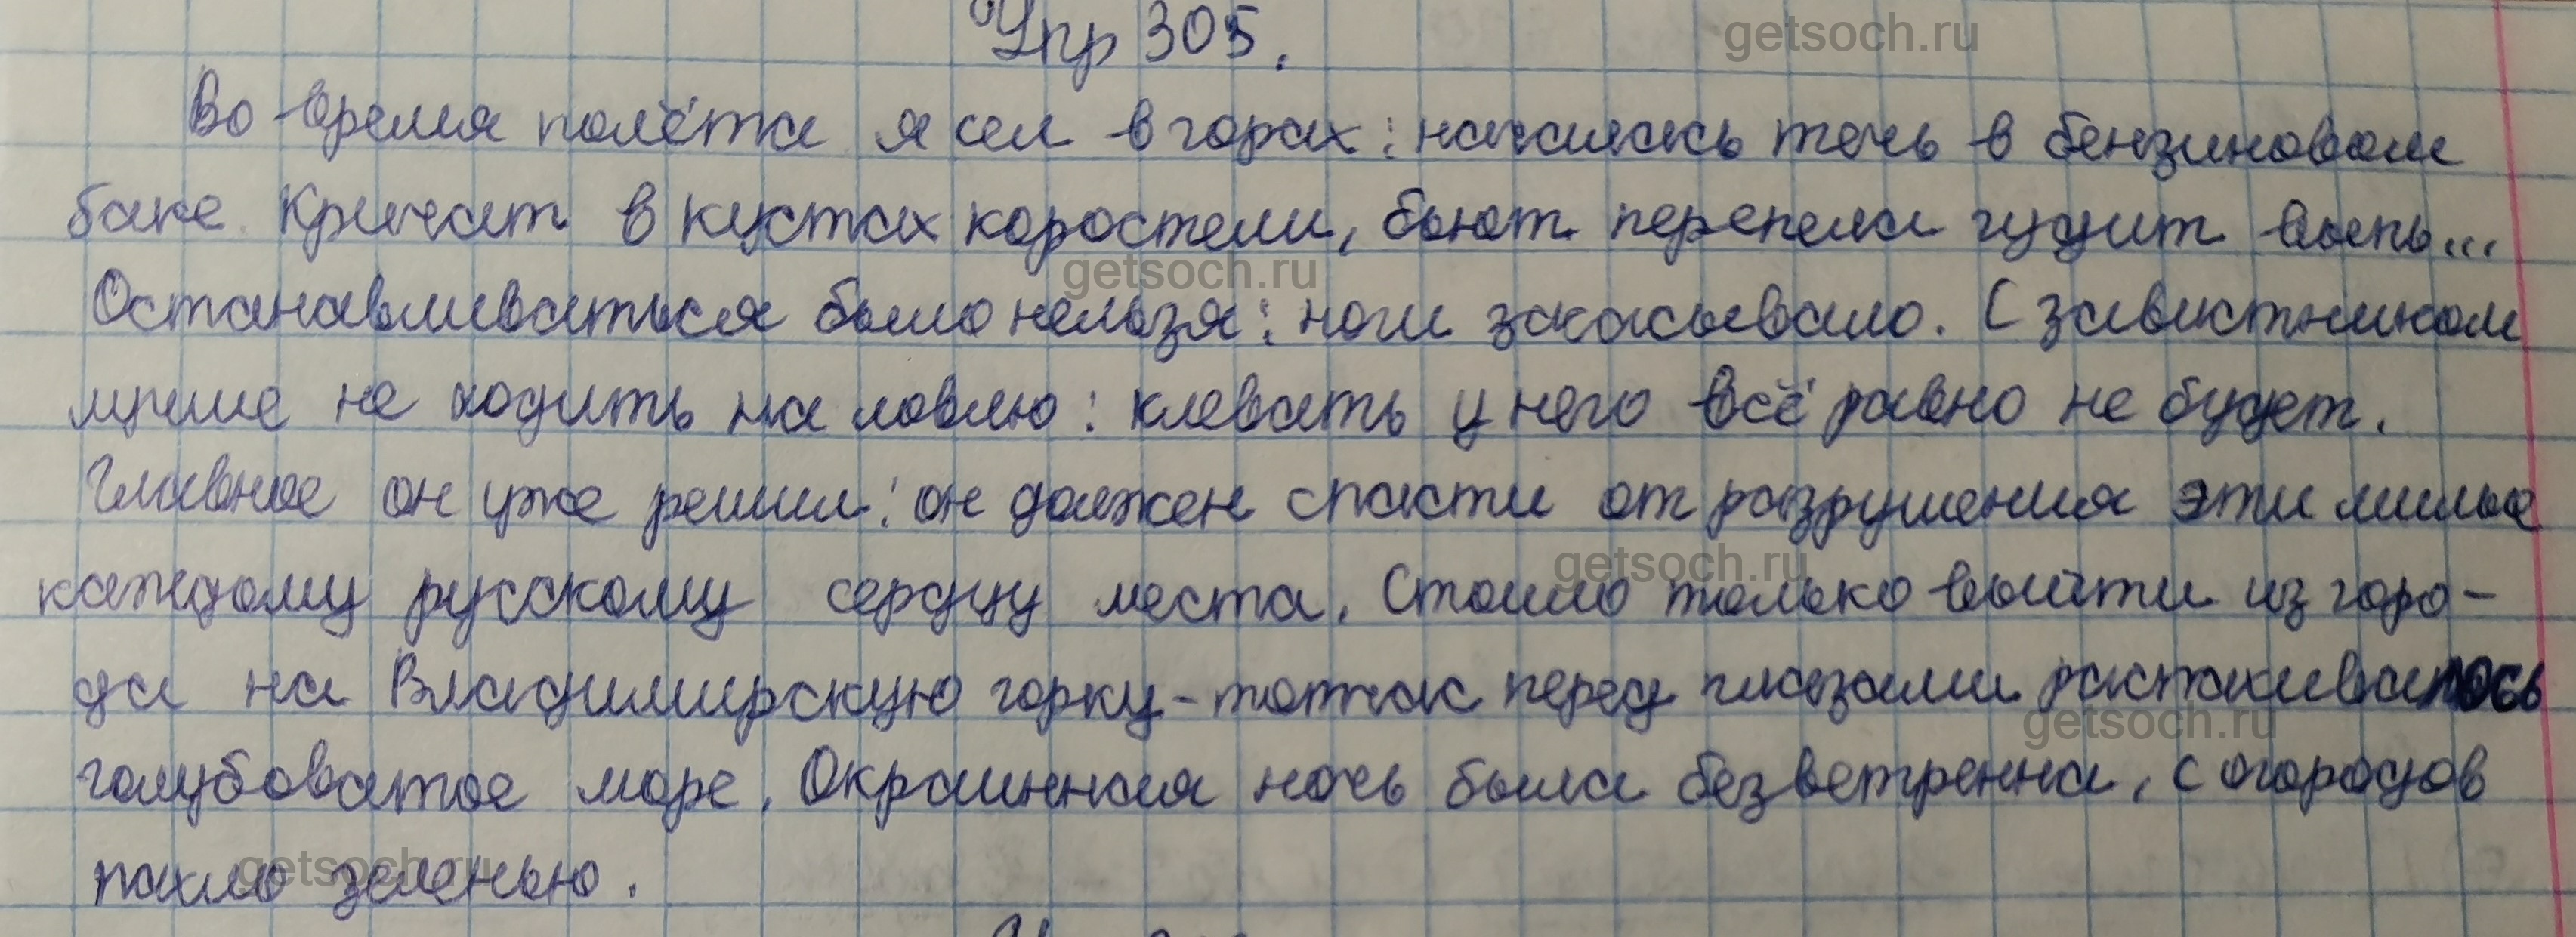 Упр 305.
getsoch.ru
Во время полёта я сел в горах: началась течь в бензиновом
баке. Кричат в кустах коростели, бьют перепела гудит выпь...
getsoch.ru
Останавливаться было нельзя: ноги засасывало. С завистником
лучше не ходить на ловлю: клевать у него всё равно не будет.
Главное он уже решил: он должен спасти от разрушения эти милые
getsoch.ru
каждому русскому сердцу места. Стоило только выйти из горо-
да на Владимирскую горку-тотчас перед глазами распахивалось
getsoch.ru
голубоватое море. Окраинная ночь была безветренна, с огородов
getsoch.ru
пахло зеленью.